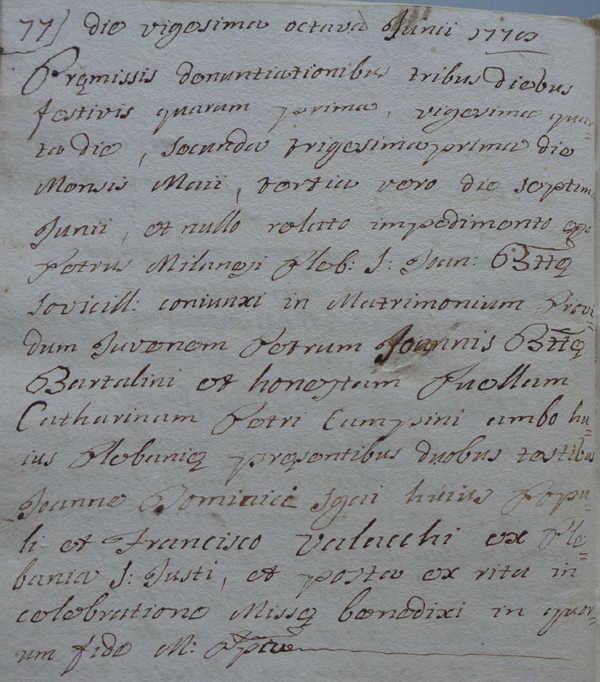 77) die vigesima octava Junii 1770
Pręmissis denuntiationibus tribus diebus
festivis quarum prima, vigesima quar-
ta die, secunda trigesima prima die
Mensis Maii, tertia vero die septim
Junii, et nullo relato impedimento ego
Petrus Milanesi Pleb: S: Joan: Bttę
Sovicill: coniunxi in Matrimonium Provi
dum Juvenem Petrum Joannis Bttę
Bartalini et honestam Puellam
Catharinam Petri Campini ambo hu=
ius Plebanię pręsentibus duobus testibus
Joanne Dominici Sgai huius Popu=
li et Francisco Valacchi ex Ple=
bania S: Justi, et postea ex rita in
celebratione Missę benedixi in quor=
um fide M: Ppria